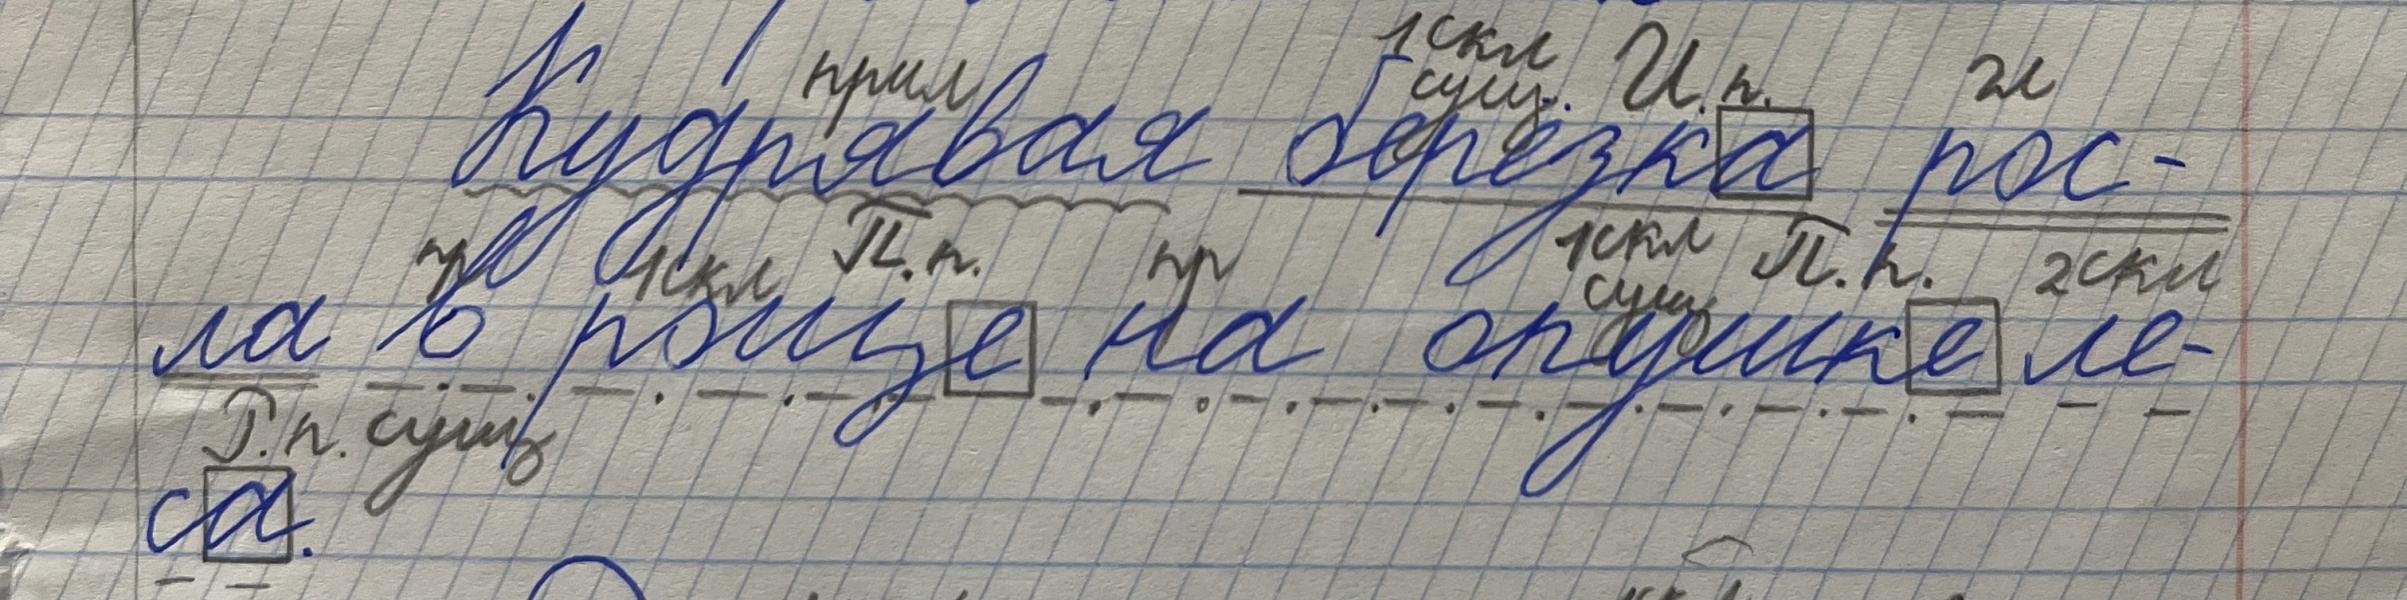 прил 1скл сущ. И.п. гл
Кудрявая берёзка рос-
пр 1скл П.п. пр 1скл сущ П.п. 2скл
ла в роще на опушке ле-
Р.п. сущ
са.